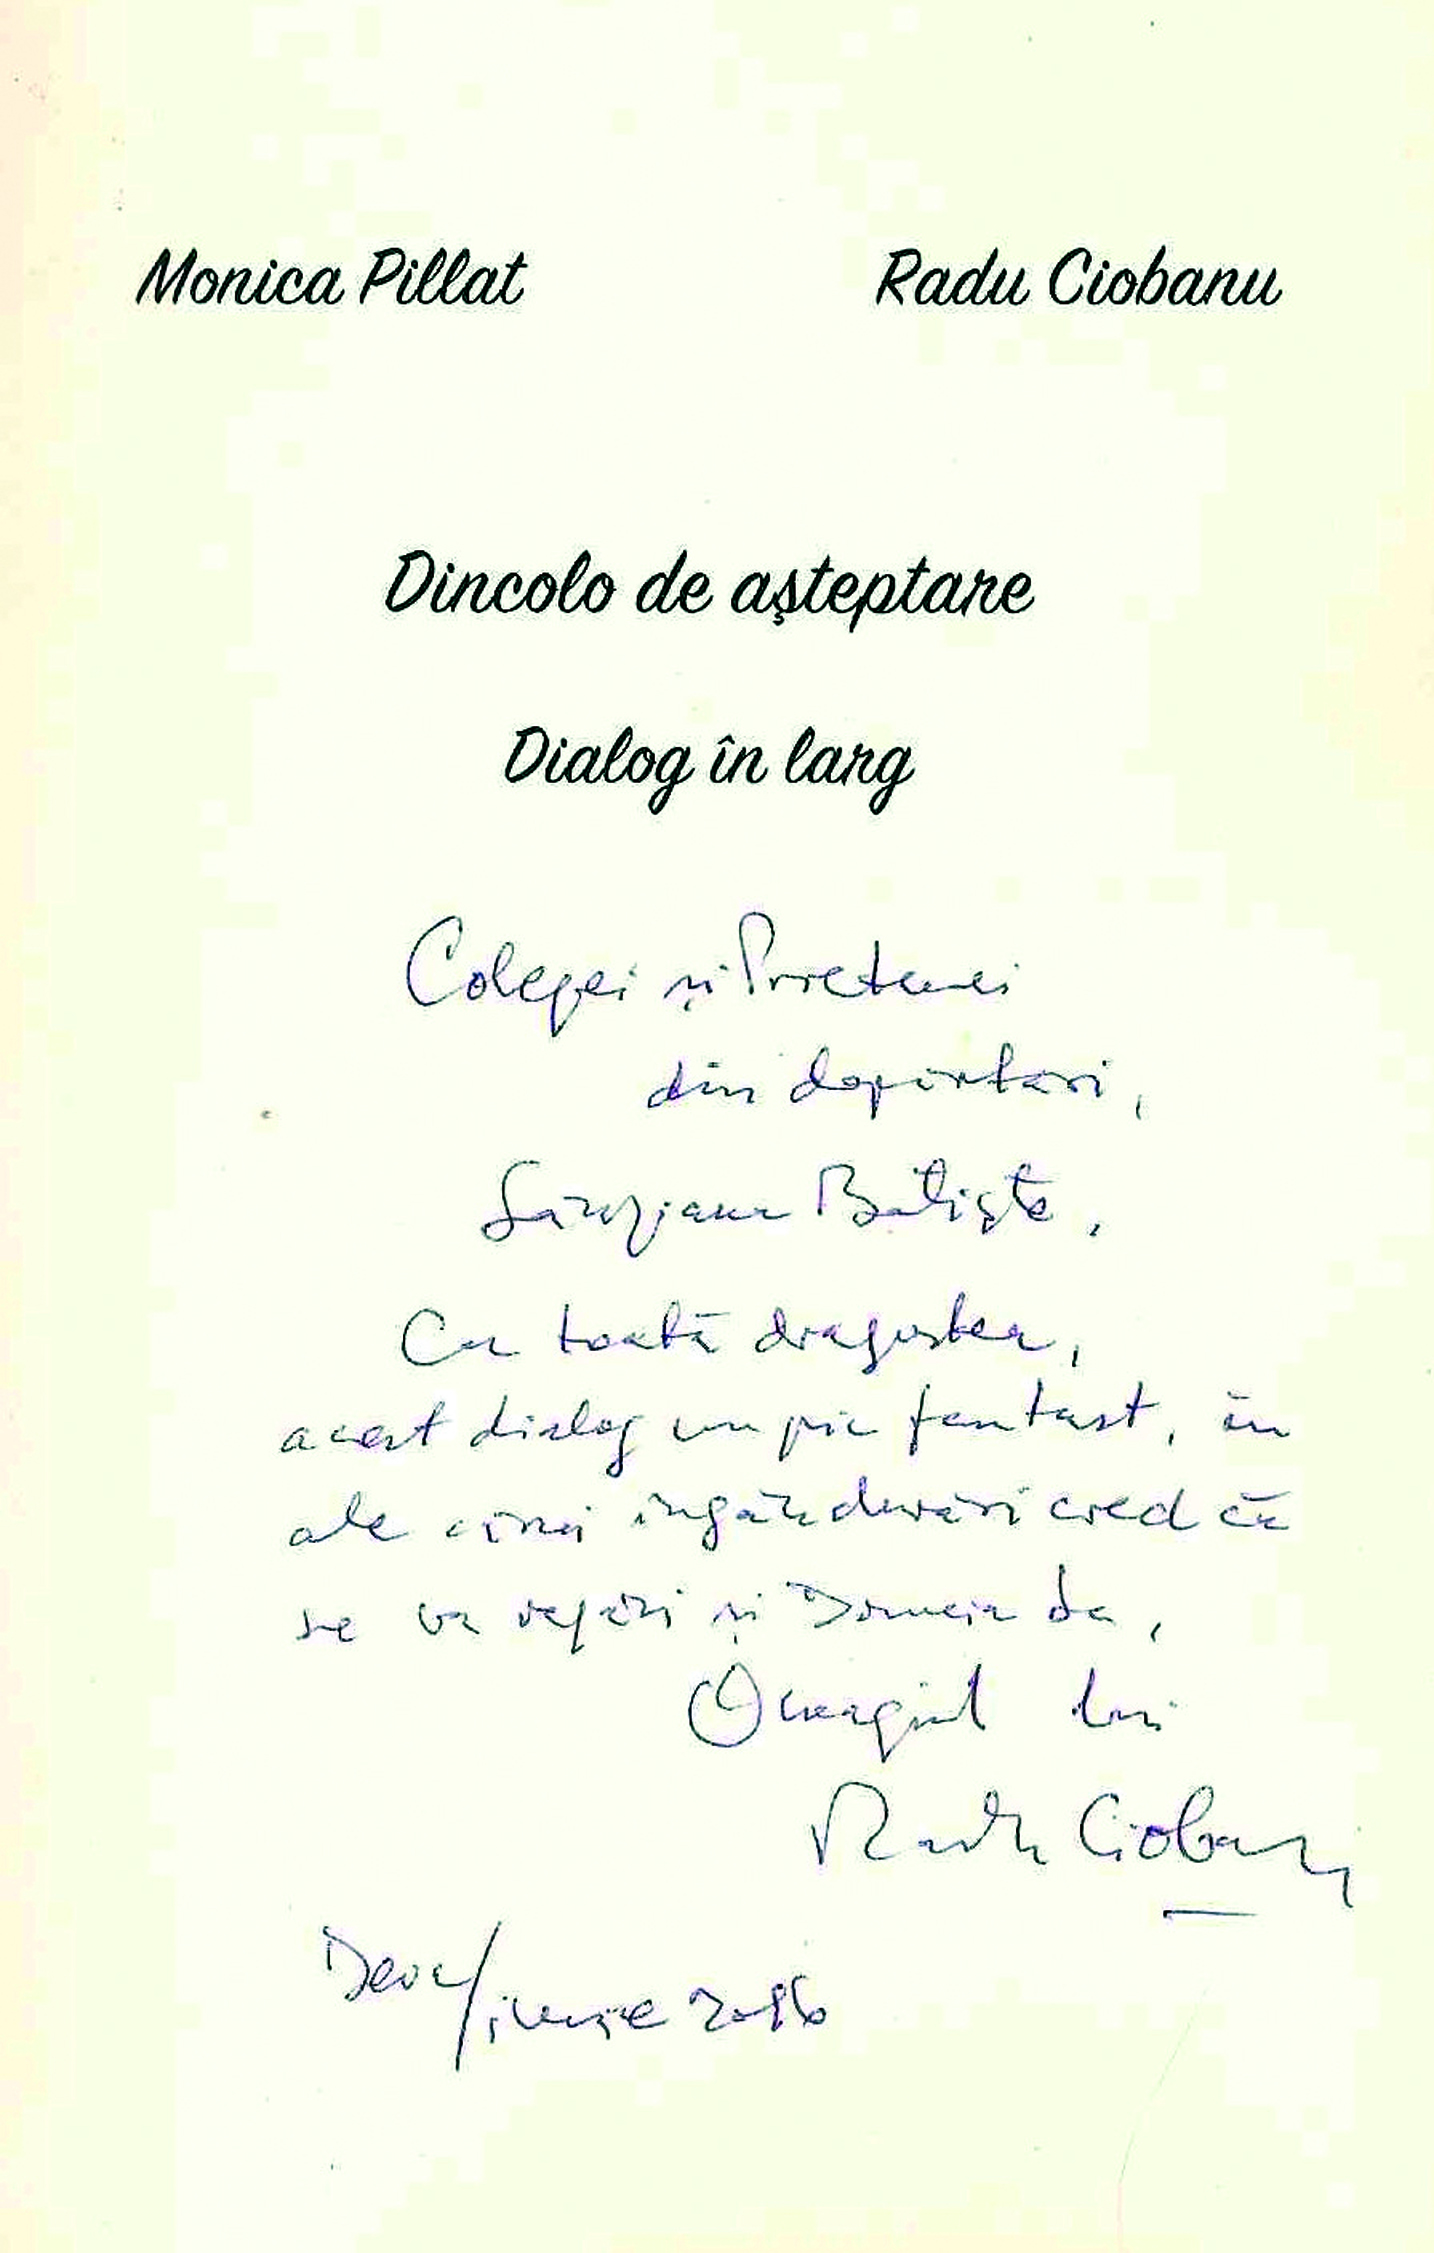 Monica Pillat
Radu Ciobanu
Dincolo de aşteptare
Dialog în larg
Colegei și Prietenei
din depărtări,
Sânziana Batişte,
Cu toată dragostea,
acest dialog un pic fantast, în
ale cărui îngândurări cred că
se va regăsi și Domnia Sa,
Omagiul lui
Radu Ciobanu
Deva/iunie 2016